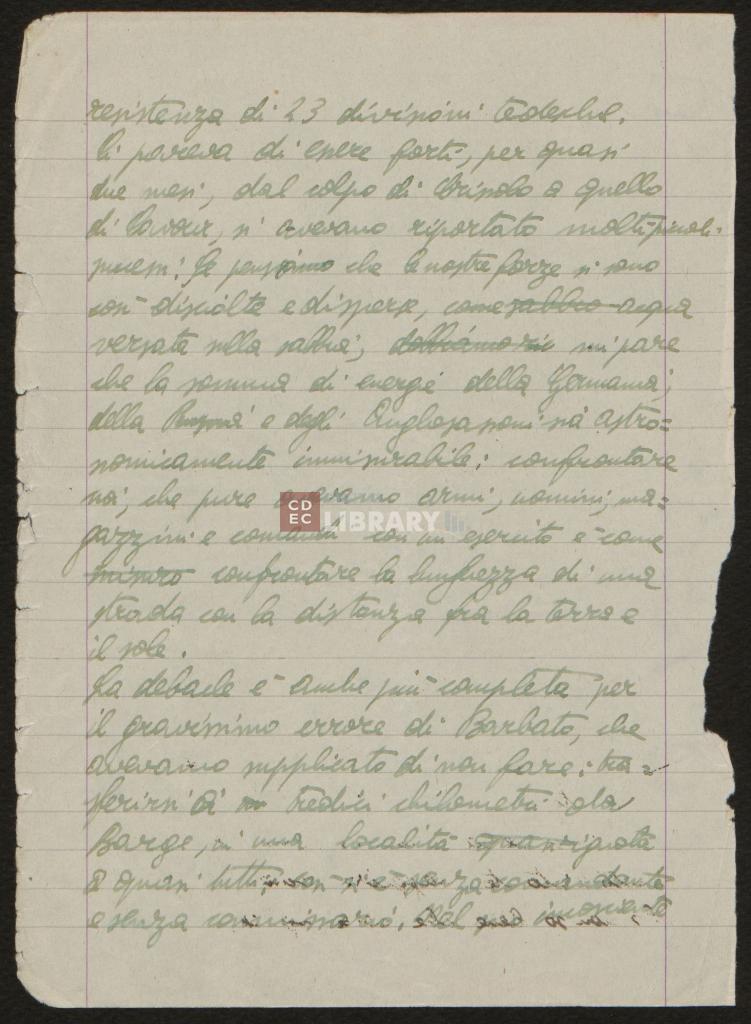 resistenza di 23 divisioni tedesche.
Ci pareva di essere forti, per quasi
due mesi, dal colpo di Brisolo a quello
di Cavour, si avevano riportato molti piccoli
successi. Se pensiamo che le nostre forze si sono
così disciolte e disperse, come sabbia acqua
versata sulla sabbia, dobbiamo mi pare
che la somma di energie della Germania,
della Russia e degli Anglosassoni sia astro=
nomicamente immisurabile: confrontare
noi, che pure avevamo armi, uomini, ma=
gazzini e comandi con un esercito è come
misuro confrontare la lunghezza di una
strada con la distanza fra la terra e
il sole.
La debacle è anche più completa per
il gravissimo errore di Barbato, che
avevamo supplicato di non fare: tra=
sferirsi a tredici chilometri da
Barge, in una località quasi ignota
a quasi tutti, così si è senza comandante
e senza commissario. Nel
CDEC LIBRARY